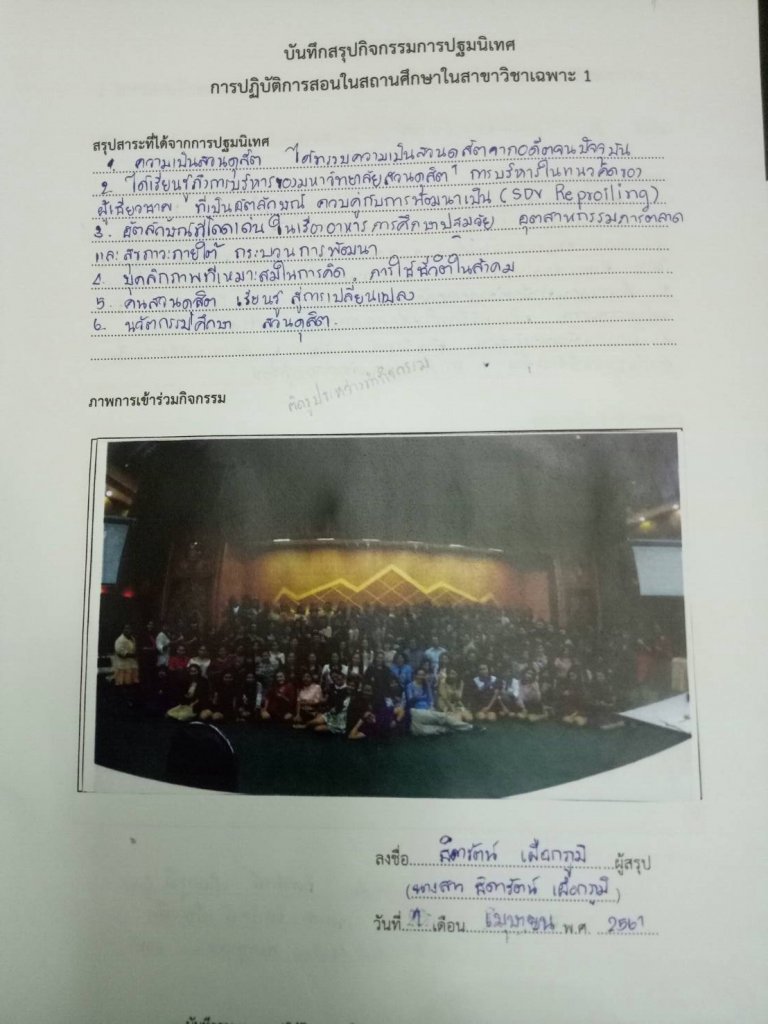 บันทึกสรุปกิจกรรมการปฐมนิเทศ
การปฏิบัติการสอนในสถานศึกษาในสาขาวิชาเฉพาะ 1
สรุปสาระที่ได้จากการปฐมนิเทศ
1. ความเป็นสวนดุสิต ได้ทราบความเป็นสวนดุสิตจากอดีตจนปัจจุบัน
2. ได้เรียนรู้ถึงการบริหารของมหาวิทยาลัยสวนดุสิต การบริหารในแนวคิดของ
ผู้เชี่ยวชาญ ที่เป็นอัตลักษณ์ ควบคู่กับการพัฒนาเป็น (SDU Reproiling)
3. อัตลักษณ์ที่โดดเด่น ในเรื่องอาหาร การศึกษาปฐมวัย อุตสาหกรรมการ
และ ภายใต้ กระบวนการพัฒนา
4. บุคลิกภาพที่เหมาะสมในการคิด การใช้ชีวิตในสังคม
5. คนสวนดุสิต เรียนรู้ สู่การเปลี่ยนแปลง
6. นวัตกรรมศึกษา สวนดุสิต
ภาพการเข้าร่วมกิจกรรม
ติดรูประหว่างทำกิจกรรม
ลงชื่อ ผู้สรุป
(นางสาว )
วันที่ 1 เดือน มิถุนายน พ.ศ. 2561